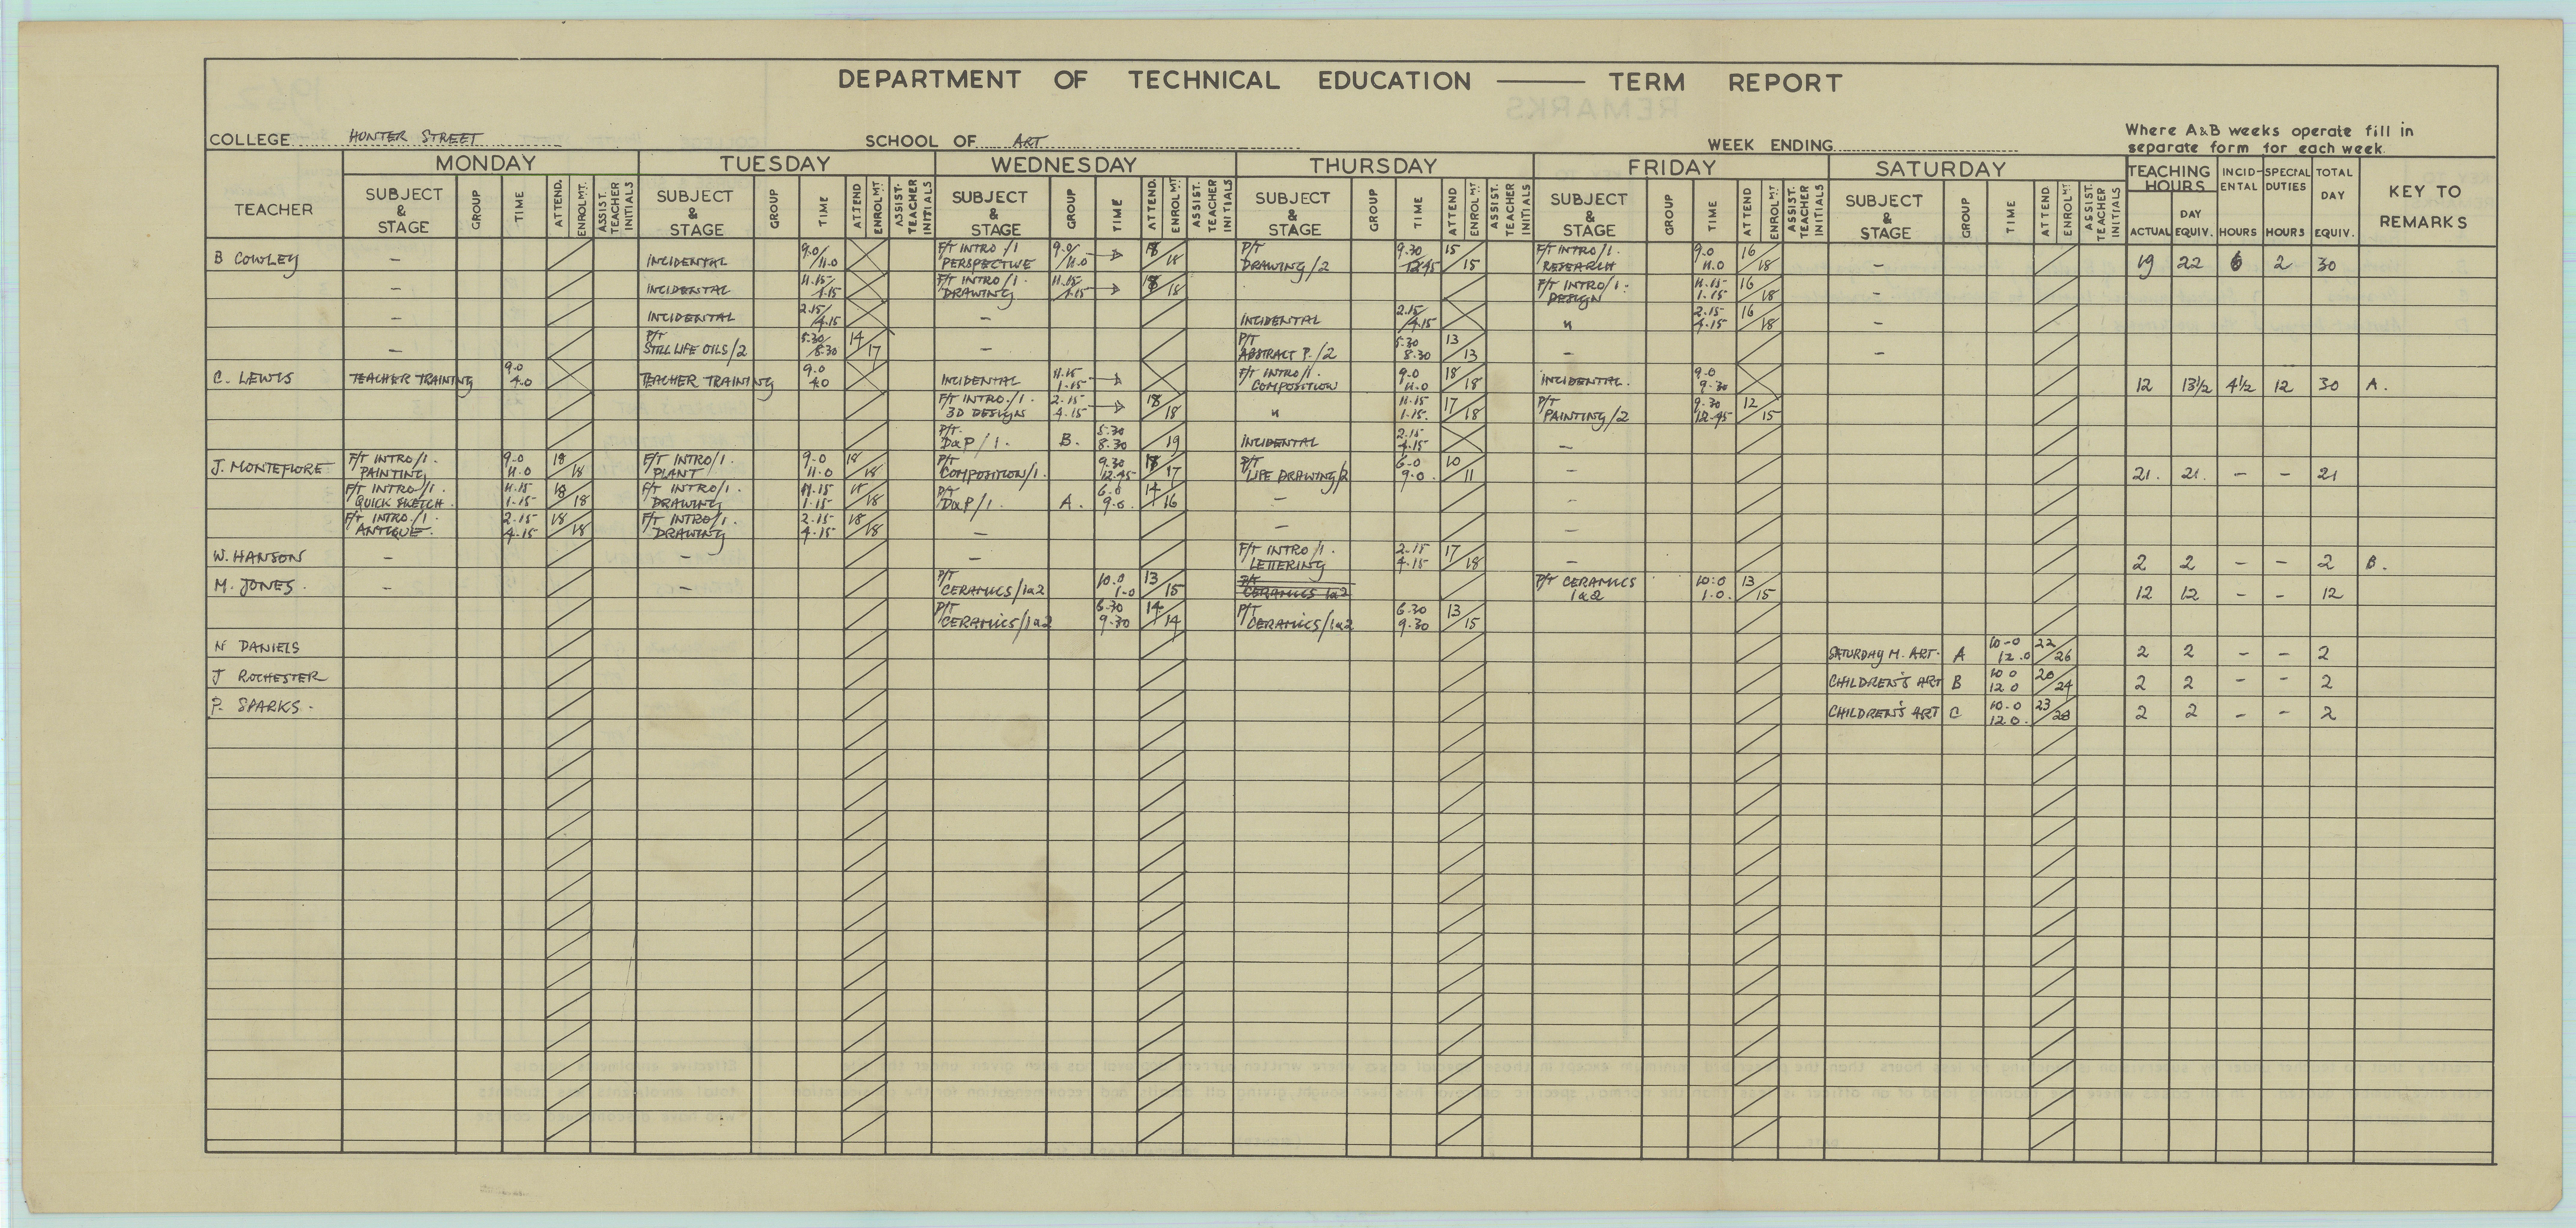 DEPARTMENT OF TECHNICAL EDUCATION —— TERM REPORT
COLLEGE HUNTER STREET SCHOOL OF ART WEEK ENDING Where A&B weeks operate fill in separate form for each week.
MONDAY TUESDAY WEDNESDAY THURSDAY FRIDAY SATURDAY TEACHING HOURS INCIDENTAL SPECIAL DUTIES TOTAL DAY KEY TO REMARKS
TEACHER SUBJECT & STAGE GROUP TIME ATTEND. ENROLMT. ASSIST. TEACHER INITIALS SUBJECT & STAGE GROUP TIME ATTEND ENROLMT ASSIST. TEACHER INITIALS SUBJECT & STAGE GROUP TIME ATTEND. ENROLMT ASSIST. TEACHER INITIALS SUBJECT & STAGE GROUP TIME ATTEND ENROLMT. ASSIST. TEACHER INITIALS SUBJECT & STAGE GROUP TIME ATTEND ENROLMT ASSIST. TEACHER INITIALS SUBJECT & STAGE GROUP TIME ATTEND ENROLMT ASSIST. TEACHER INITIALS ACTUAL DAY EQUIV. HOURS HOURS EQUIV.
B COWLEY – INCIDENTAL 9.0/11.0 F/T INTRO/1 PERSPECTIVE 9.0/11.0 → 18/18 P/T DRAWING/2 9.30 12.45 15/15 F/T INTRO/1. RESEARCH 9.0 11.0 16/18 – 19 22 6 2 30
– INCIDENTAL 11.15/1.15 F/T INTRO/1. DRAWING 11.15/1.15 → 18/18 F/T INTRO/1. DESIGN 11.15 1.15 16/18 –
– INCIDENTAL 2.15/4.15 – INCIDENTAL 2.15/4.15 " 2.15 4.15 16/18 –
– P/T STILL LIFE OILS/2 5.30/8.30 14/17 – P/T ABSTRACT P./2 5.30 8.30 13/13 – –
C. LEWIS TEACHER TRAINING 9.0 4.0 TEACHER TRAINING 9.0 4.0 INCIDENTAL 11.15 1.15 → F/T INTRO/1. COMPOSITION 9.0 11.0 18/18 INCIDENTAL. 9.0 9.30 12 13½ 4½ 12 30 A.
F/T INTRO./1. 3D DESIGN 2.15 4.15 → 18/18 " 11.15 1.15. 17/18 P/T PAINTING/2 9.30 12.45 12/15
P/T. D&P/1. B. 5.30 8.30 /19 INCIDENTAL 2.15 4.15 –
J. MONTEFIORE F/T INTRO/1. PAINTING 9.0 11.0 18/18 F/T INTRO/1. PLANT 9.0 11.0 18/18 P/T COMPOSITION/1. 9.30 12.45 18/17 P/T LIFE DRAWING/2 6.0 9.0 10/11 – 21. 21. – – 21
F/T INTRO/1. QUICK SKETCH. 11.15 1.15 18/18 F/T INTRO/1. DRAWING 11.15 1.15 18/18 P/T D&P/1. A. 6.0 9.0 14/16 – –
F/T INTRO./1. ANTIQUE. 2.15 4.15 18/18 F/T INTRO/1. DRAWING 2.15 4.15 18/18 – – –
W. HANSON – – – F/T INTRO/1. LETTERING 2.15 4.15 17/18 – 2 2 – – 2 B.
M. JONES. – – P/T CERAMICS/1&2 10.0 1.0 13/15 P/T CERAMICS 1&2 P/T CERAMICS 1&2 10.0 1.0. 13/15 12 12 – – 12
P/T CERAMICS/1&2 6.30 9.30 14/14 P/T CERAMICS/1&2 6.30 9.30 13/15
N DANIELS SATURDAY M. ART. A 10-0 12.0 22/26 2 2 – – 2
J ROCHESTER CHILDREN'S ART B 10 0 12 0 20/24 2 2 – – 2
P. SPARKS. CHILDREN'S ART C 10-0 12 0. 23/28 2 2 – – 2